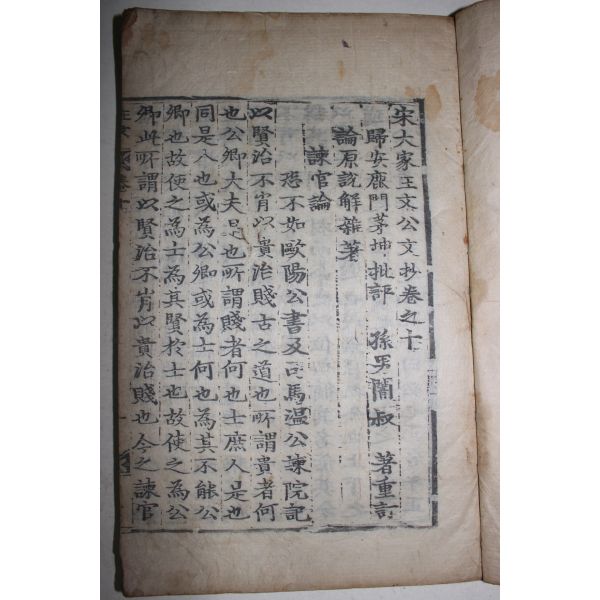 宋大家王文公文抄卷之十
歸安鹿門茅坤批評 孫男闇叔 著重訂
論原說解雜著
諫官論
恐不如歐陽公書及司馬溫公諫院記
以賢治不肖以貴治賤古之道也所謂貴者何
也公卿大夫是也所謂賤者何也士庶人是也
同是人也或為公卿或為士何也為其不能公
卿也故使之為士為其賢於士也故使之為公
卿此所謂以賢治不肖以貴治賤也今之諫官